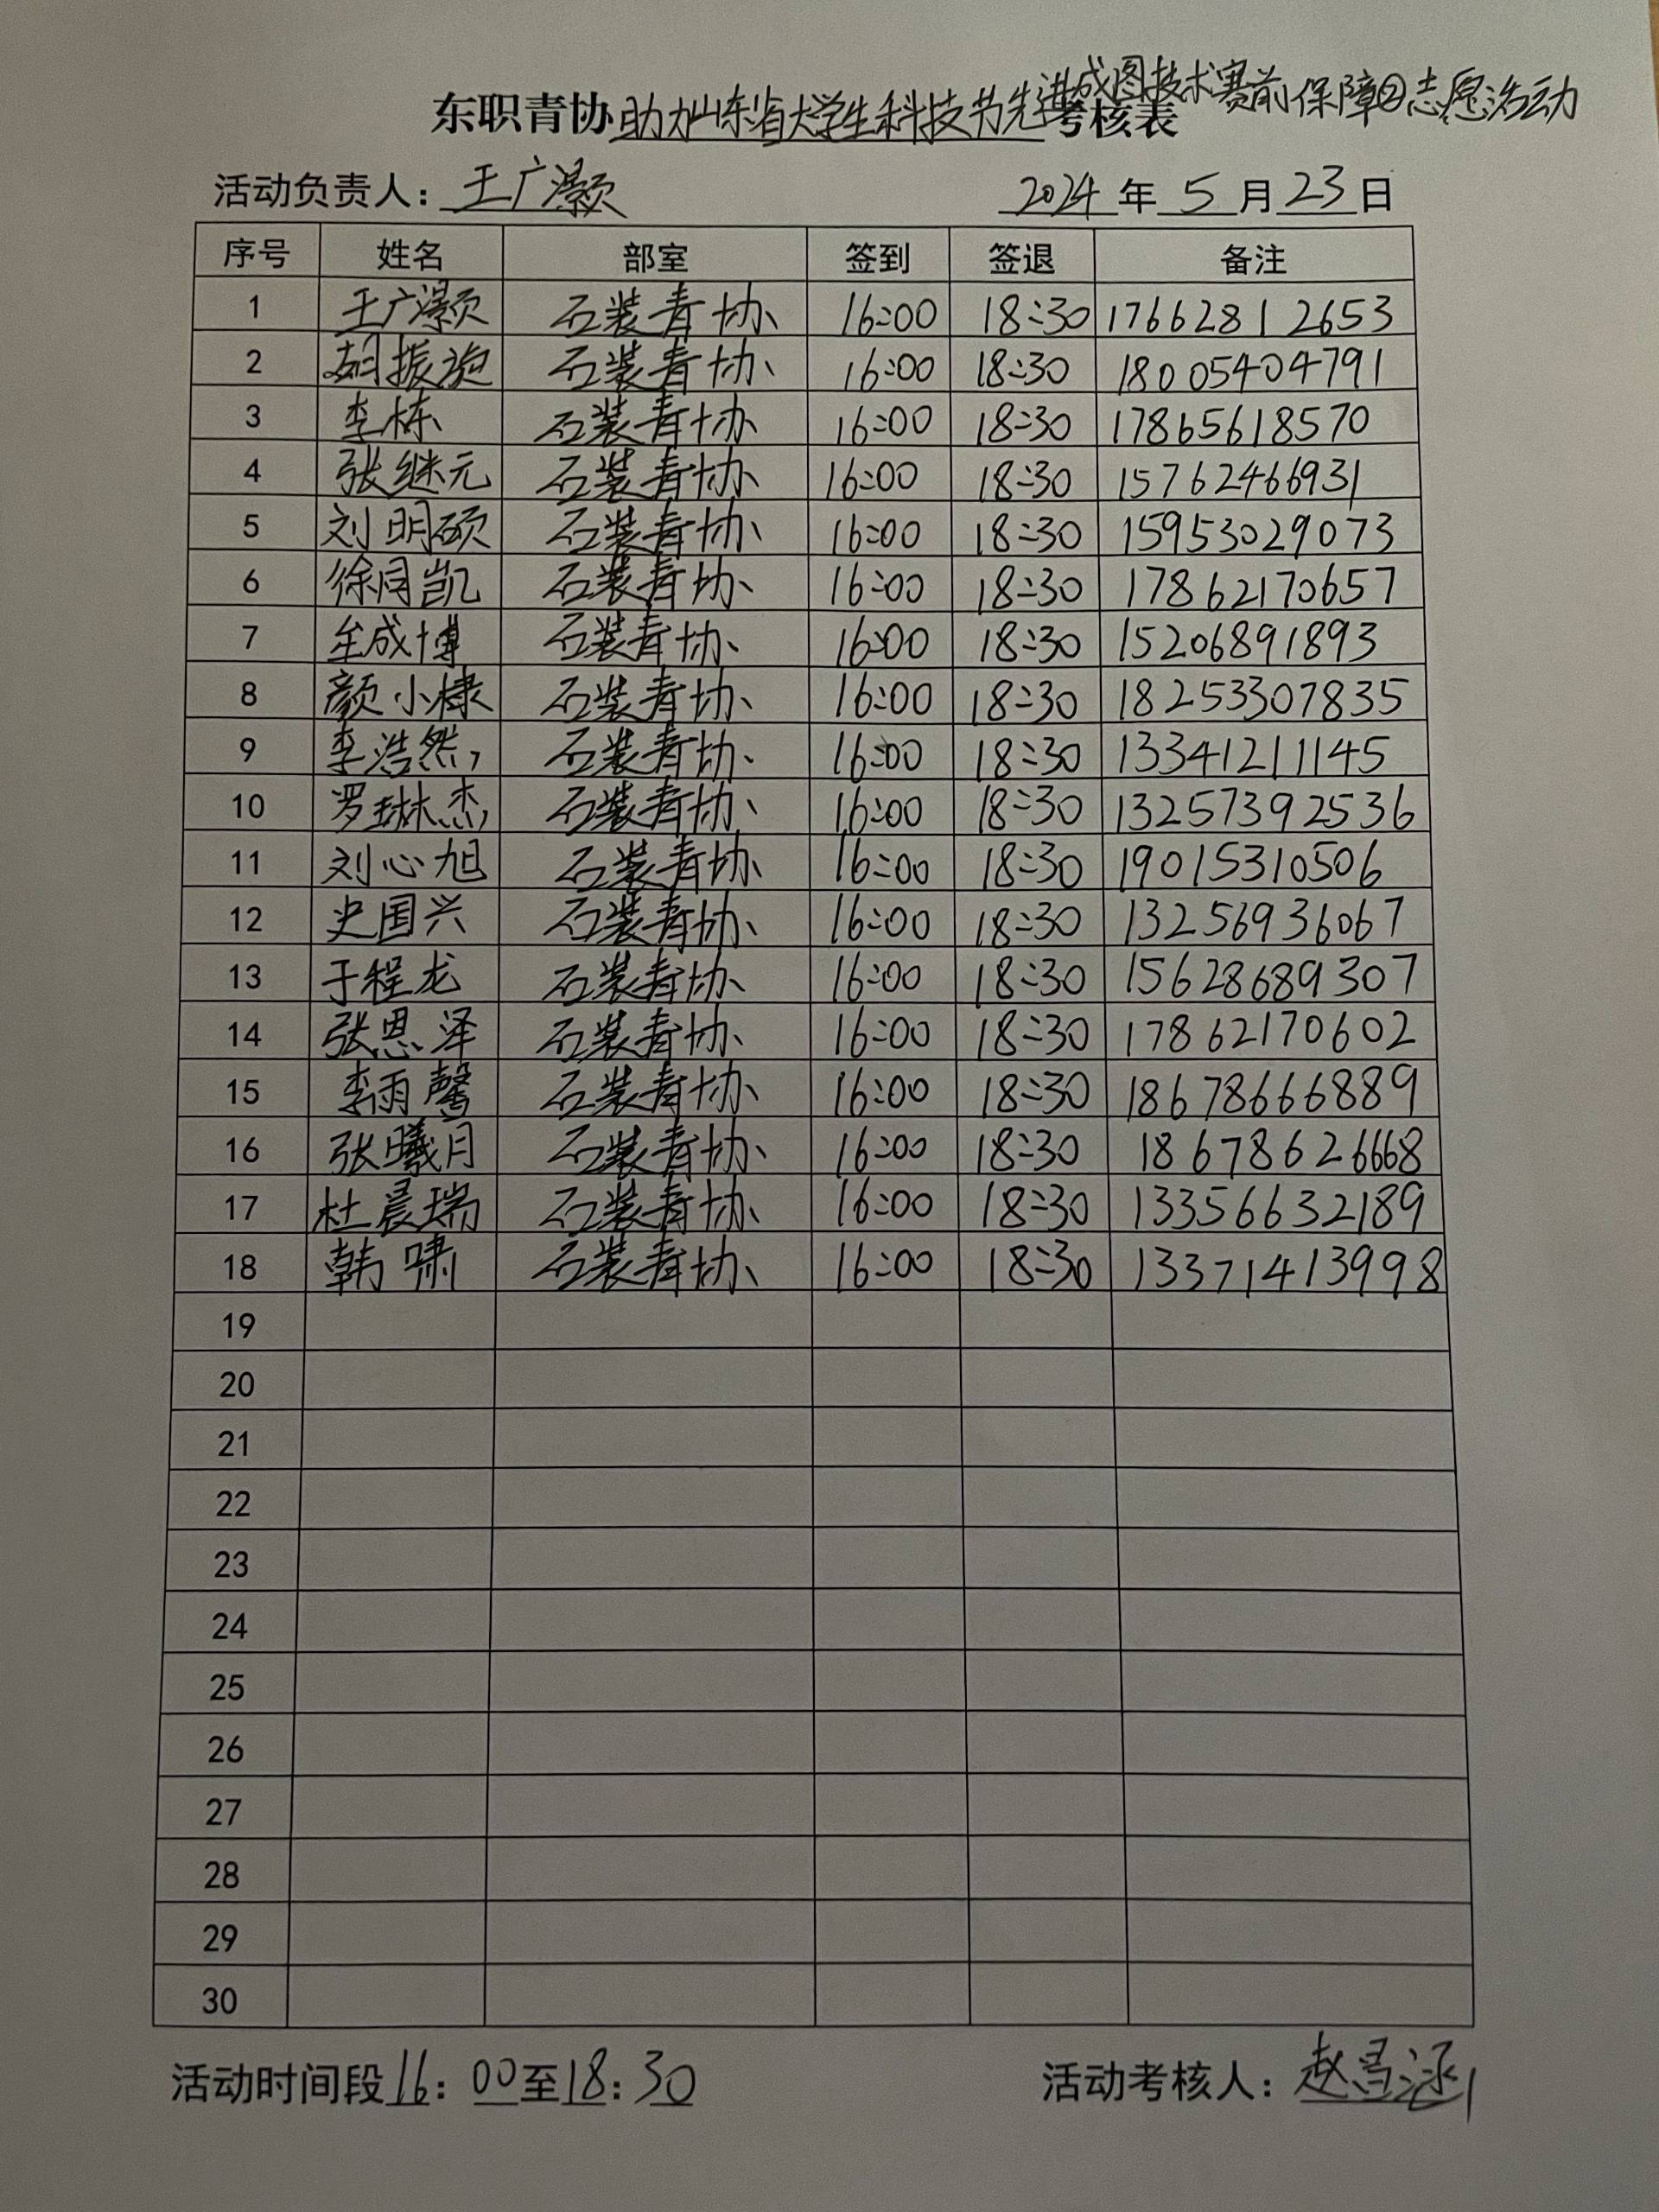 东职青协助力山东省大学生科技节先进成图技术赛前保障②志愿活动考核表
活动负责人：王广灏 2024年5月23日
序号 姓名 部室 签到 签退 备注
1 王广灏 石装青协 16:00 18:30 17662812653
2 胡振 石装青协 16:00 18:30 18005404791
3 李栋 石装青协 16:00 18:30 17865618570
4 张继元 石装青协 16:00 18:30 15762466931
5 刘明硕 石装青协 16:00 18:30 15953029073
6 徐同凯 石装青协 16:00 18:30 17862170657
7 牟成博 石装青协 16:00 18:30 15206891893
8 颜小棣 石装青协 16:00 18:30 18253307835
9 李浩然 石装青协 16:00 18:30 13341211145
10 罗琳杰 石装青协 16:00 18:30 13257392536
11 刘心旭 石装青协 16:00 18:30 19015310506
12 史国兴 石装青协 16:00 18:30 13256936067
13 于程龙 石装青协 16:00 18:30 15628689307
14 张恩泽 石装青协 16:00 18:30 17862170602
15 李雨馨 石装青协 16:00 18:30 18678666889
16 张曦月 石装青协 16:00 18:30 18678626668
17 杜晨瑞 石装青协 16:00 18:30 13356632189
18 韩啸 石装青协 16:00 18:30 13371413998
19
20
21
22
23
24
25
26
27
28
29
30
活动时间段16：00至18：30 活动考核人：赵昌涵